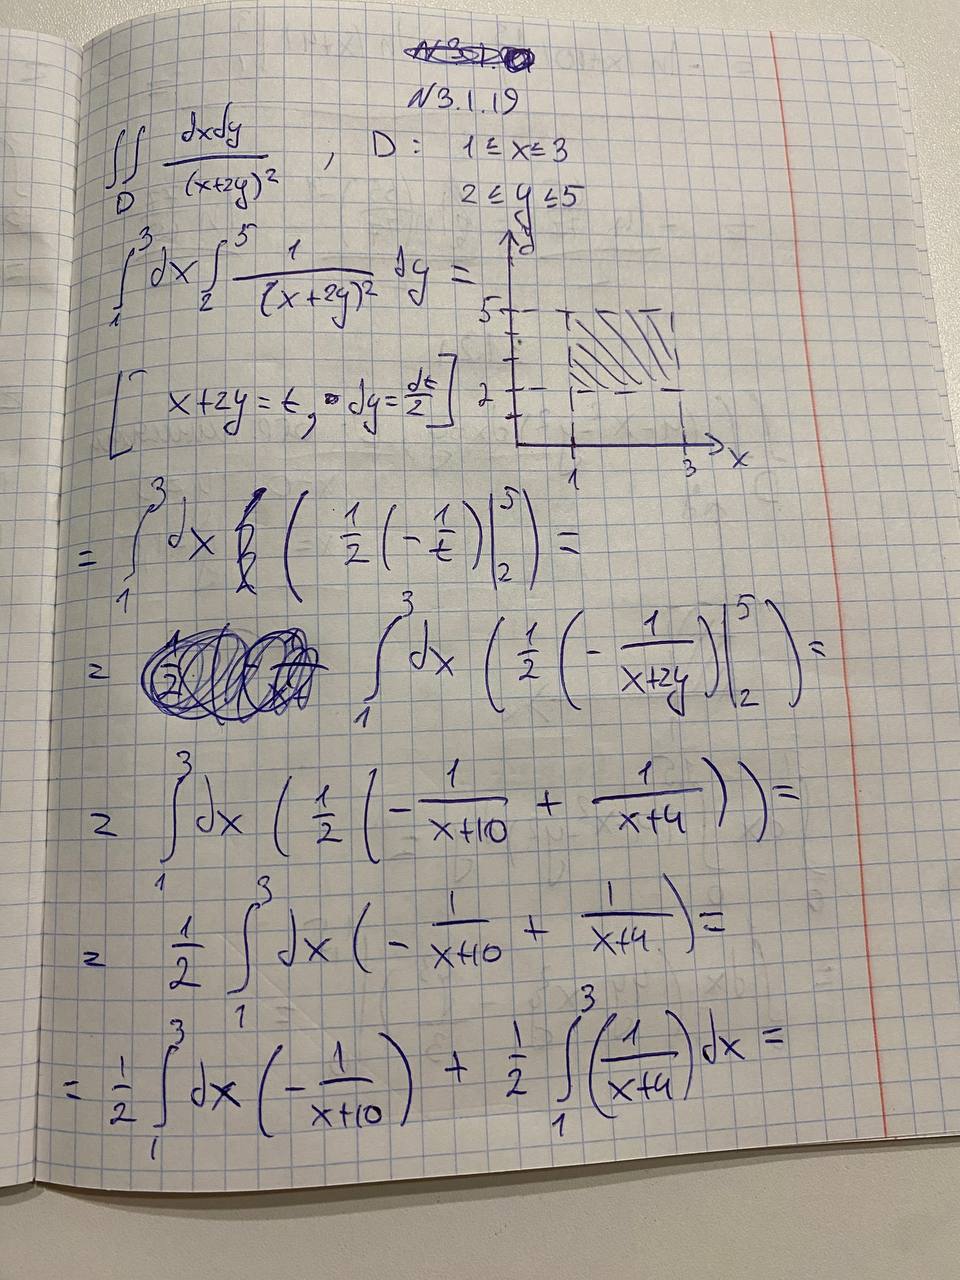 N3.1.19
∬_D dxdy/(x+2y)² , D: 1 ≤ x ≤ 3
2 ≤ y ≤ 5
∫_1^3 dx ∫_2^5 1/(x+2y)² dy =
y
5
2
1
3
x
[ x+2y = t, dy = dt/2 ]
= ∫_1^3 dx ( 1/2 ( - 1/t ) |_2^5 ) =
= ∫_1^3 dx ( 1/2 ( - 1/(x+2y) ) |_2^5 ) =
= ∫_1^3 dx ( 1/2 ( - 1/(x+10) + 1/(x+4) ) ) =
= 1/2 ∫_1^3 dx ( - 1/(x+10) + 1/(x+4) ) =
= 1/2 ∫_1^3 dx ( - 1/(x+10) ) + 1/2 ∫_1^3 ( 1/(x+4) ) dx =